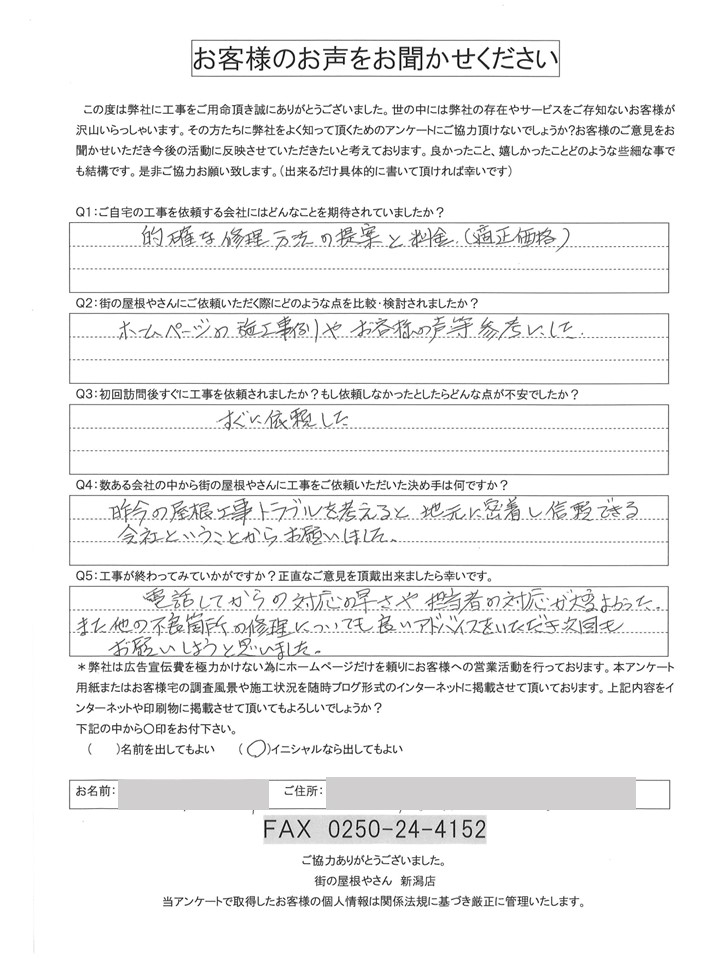 お客様のお声をお聞かせください
この度は弊社に工事をご用命頂き誠にありがとうございました。世の中には弊社の存在やサービスをご存知ないお客様が
沢山いらっしゃいます。その方たちに弊社をよく知って頂くためのアンケートにご協力頂けないでしょうか?お客様のご意見をお
聞かせいただき今後の活動に反映させていただきたいと考えております。良かったこと、嬉しかったことどのような些細な事で
も結構です。是非ご協力お願い致します。(出来るだけ具体的に書いて頂ければ幸いです)
Q1:ご自宅の工事を依頼する会社にはどんなことを期待されていましたか?
的確な修理方法の提案と料金.(適正価格)
Q2:街の屋根やさんにご依頼いただく際にどのような点を比較・検討されましたか?
ホームページの施工事例やお客様の声等参考にした.
Q3:初回訪問後すぐに工事を依頼されましたか?もし依頼しなかったとしたらどんな点が不安でしたか?
すぐに依頼した
Q4:数ある会社の中から街の屋根やさんに工事をご依頼いただいた決め手は何ですか?
昨今の屋根工事トラブルを考えると地元に密着し信頼できる
会社ということからお願いしました。
Q5:工事が終わってみていかがですか?正直なご意見を頂戴出来ましたら幸いです。
電話してからの対応の早さや担当者の対応が大変よかった.
また他の不良箇所の修理についても良いアドバイスをいただき次回も
お願いしようと思いました。
*弊社は広告宣伝費を極力かけない為にホームページだけを頼りにお客様への営業活動を行っております。本アンケート
用紙またはお客様宅の調査風景や施工状況を随時ブログ形式のインターネットに掲載させて頂いております。上記内容をイ
ンターネットや印刷物に掲載させて頂いてもよろしいでしょうか?
下記の中から〇印をお付下さい。
( )名前を出してもよい (〇)イニシャルなら出してもよい
お名前: ご住所:
FAX 0250-24-4152
ご協力ありがとうございました。
街の屋根やさん 新潟店
当アンケートで取得したお客様の個人情報は関係法規に基づき厳正に管理いたします。